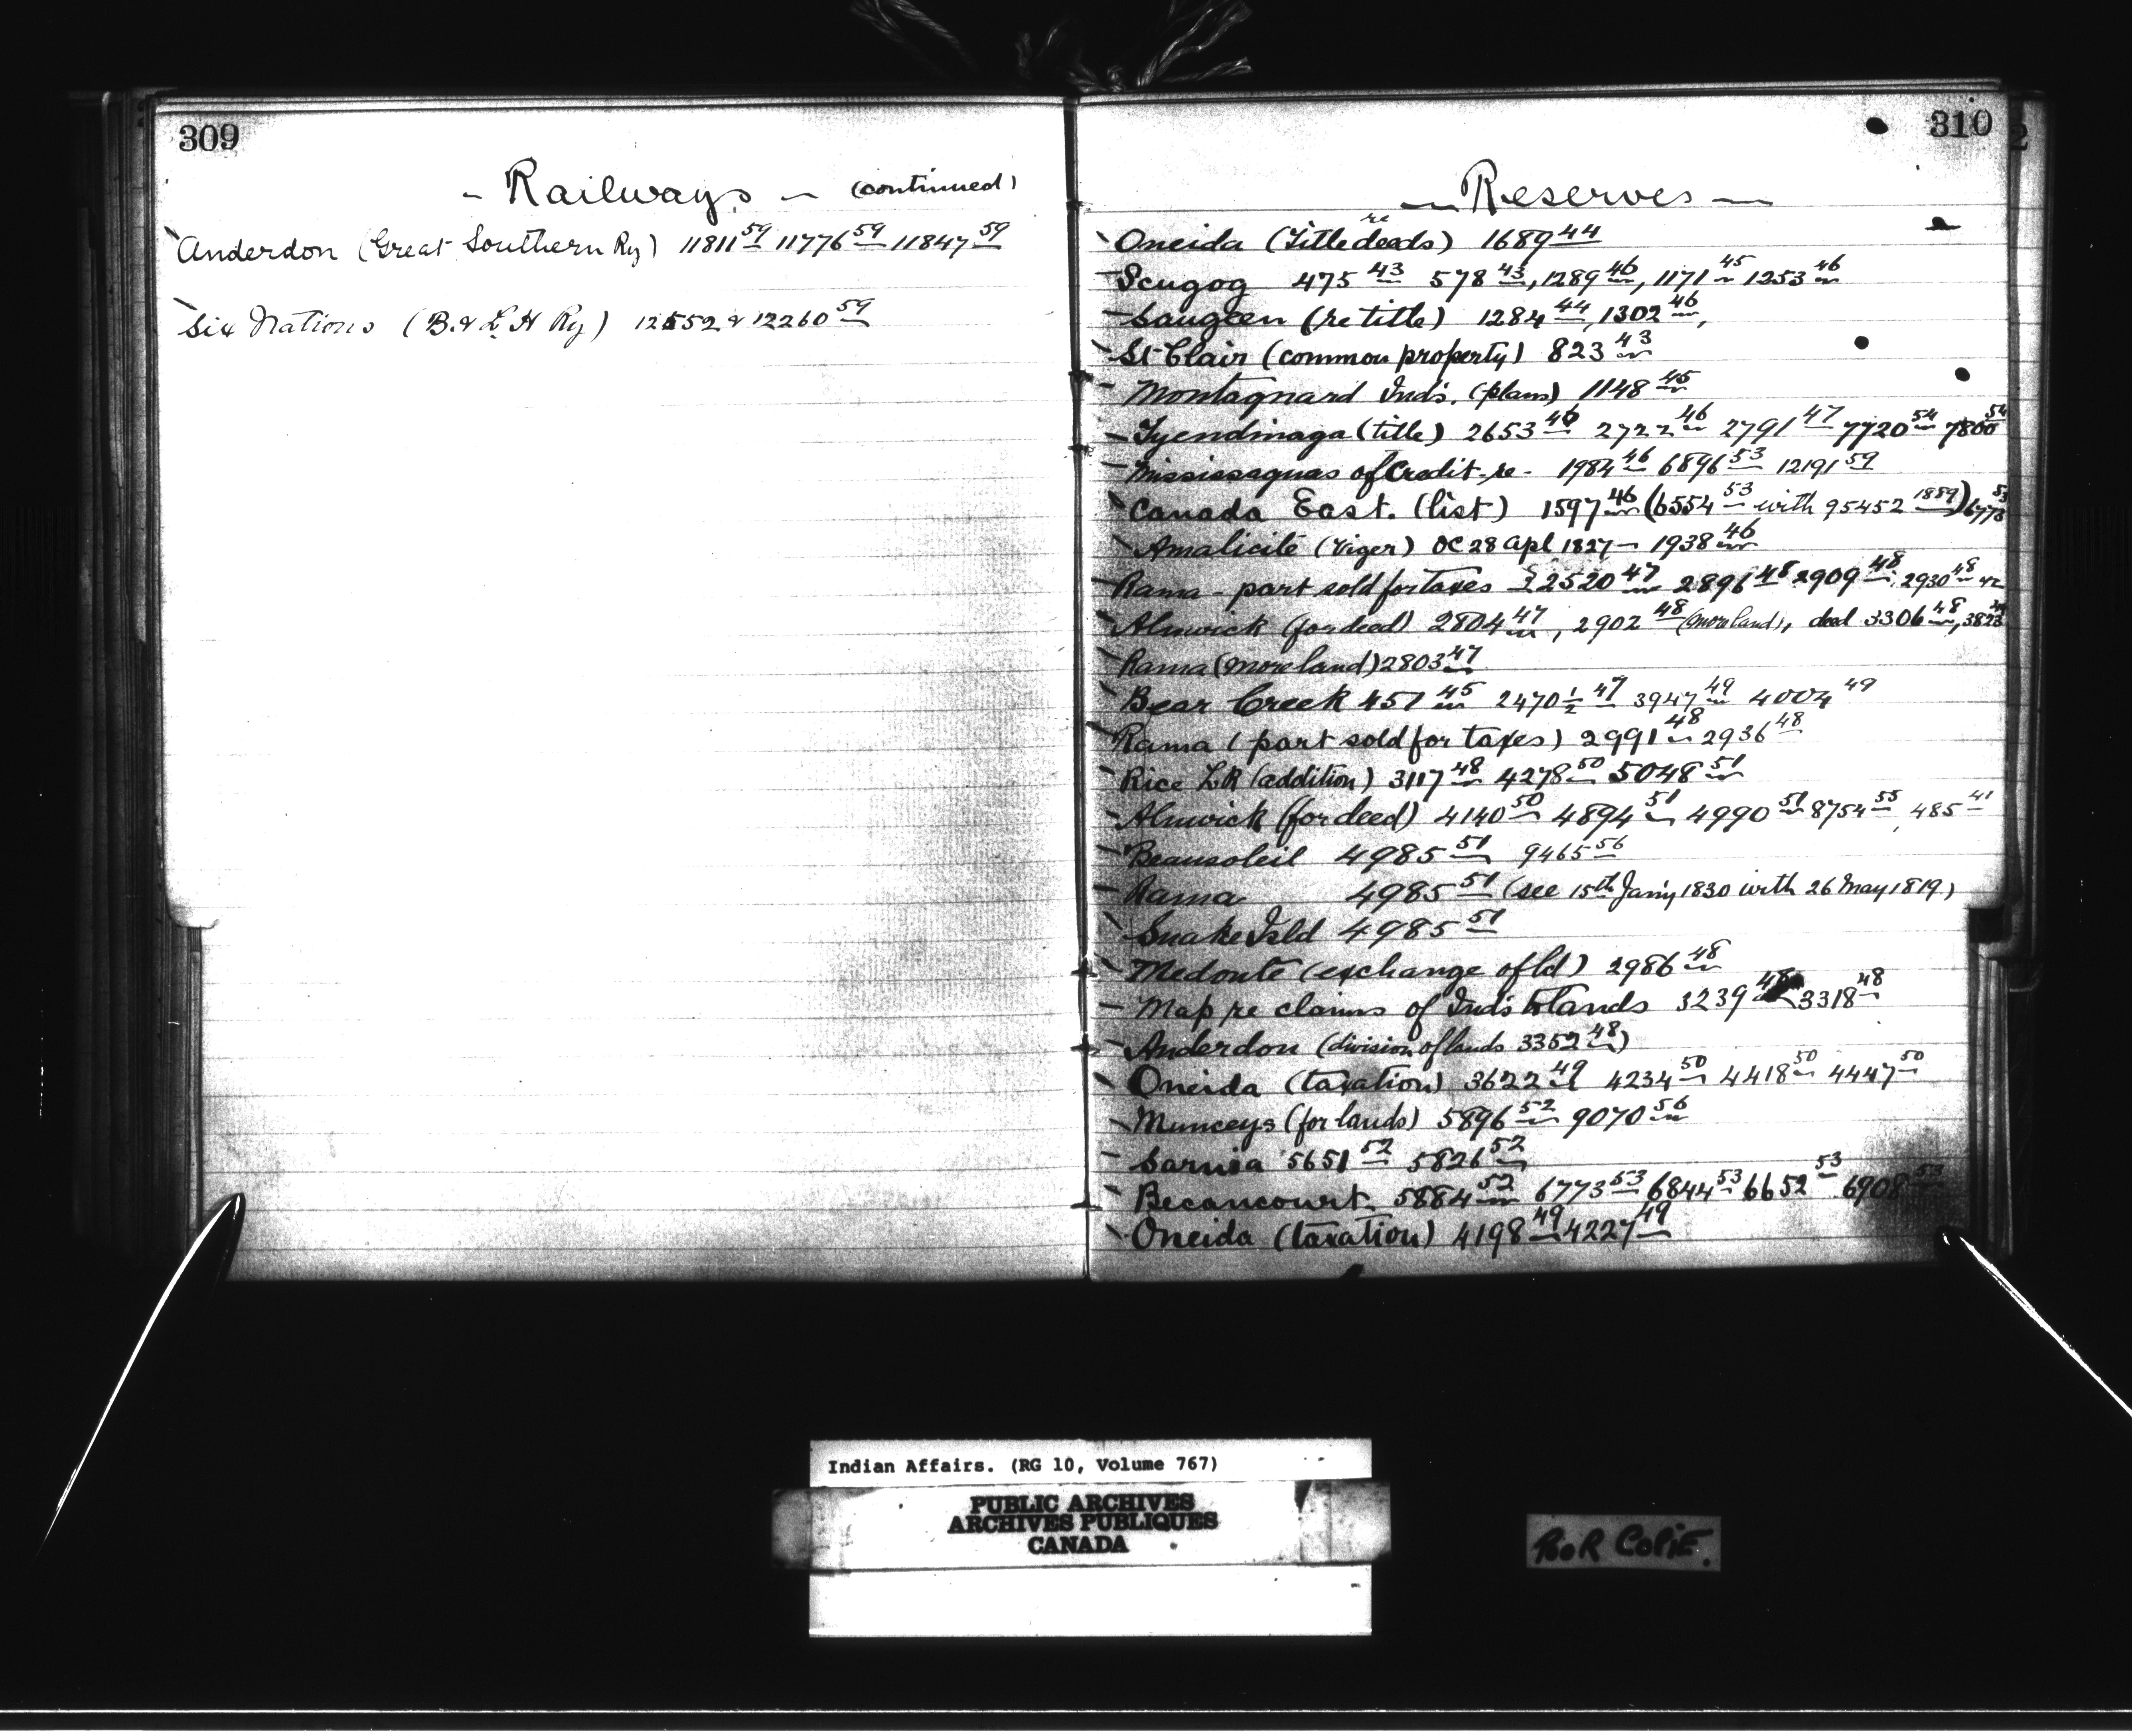 309
- Railways - (continued)
Anderdon (Great Southern Ry) 11811 59 11776 59 11847 59
Six Nations (B. & L. H Ry) 12552 & 12260 59
310
2
- Reserves -
re
Oneida (Title deeds) 1689 44
Scugog 475 43 578 43, 1289 46, 1171 45 1253 46
Saugeen (re title) 1284 44, 1302 46,
St Clair (common property) 823 43
Montagnard Inds. (plans) 1148 45
Tyendinaga (title) 2653 46 2722 46 2791 47 7720 54 7800 54
Mississaguas of Credit - re - 1984 46 6896 53 12191 59
Canada East. (list) 1597 46 (6554 53 with 95452 1889) 6773 53
Amalicite (Viger) OC 28 Apl 1827 - 1938 46
Rama - part sold for taxes 2520 47 2896 48 2909 48, 2930 48
Alnwick (for deed) 2804 47, 2902 48 (more land), deed 3306 48, 3823
Rama (more land) 2803 47
Bear Creek 457 45 2470 1/2 47 3947 49 4004 49
Rama (part sold for taxes) 2991 48 2936 48
Rice Lk (addition) 3117 48 4278 50 5048 51
Alnwick (for deed) 4140 50 4894 51 4990 51 8754 55, 485 41
Beausoleil 4985 51 9465 56
Rama 4985 51 (see 15th Jany 1830 with 26 May 1819)
Snake Isld 4985 51
Medonte (exchange of ld) 2986 48
Map re claims of Inds Islands 3239 48 3318 48
Anderdon (division of lands 3352 48)
Oneida (taxation) 3622 49 4234 50 4418 50 4447 50
Munceys (for lands) 5896 52 9070 56
Sarnia 5651 52 5826 52
Becancourt 5884 52 6773 53 6844 53 6652 53 6908 53
Oneida (taxation) 4198 49 4227 49
Indian Affairs. (RG 10, Volume 767)
PUBLIC ARCHIVES
ARCHIVES PUBLIQUES
CANADA
POOR COPIE.